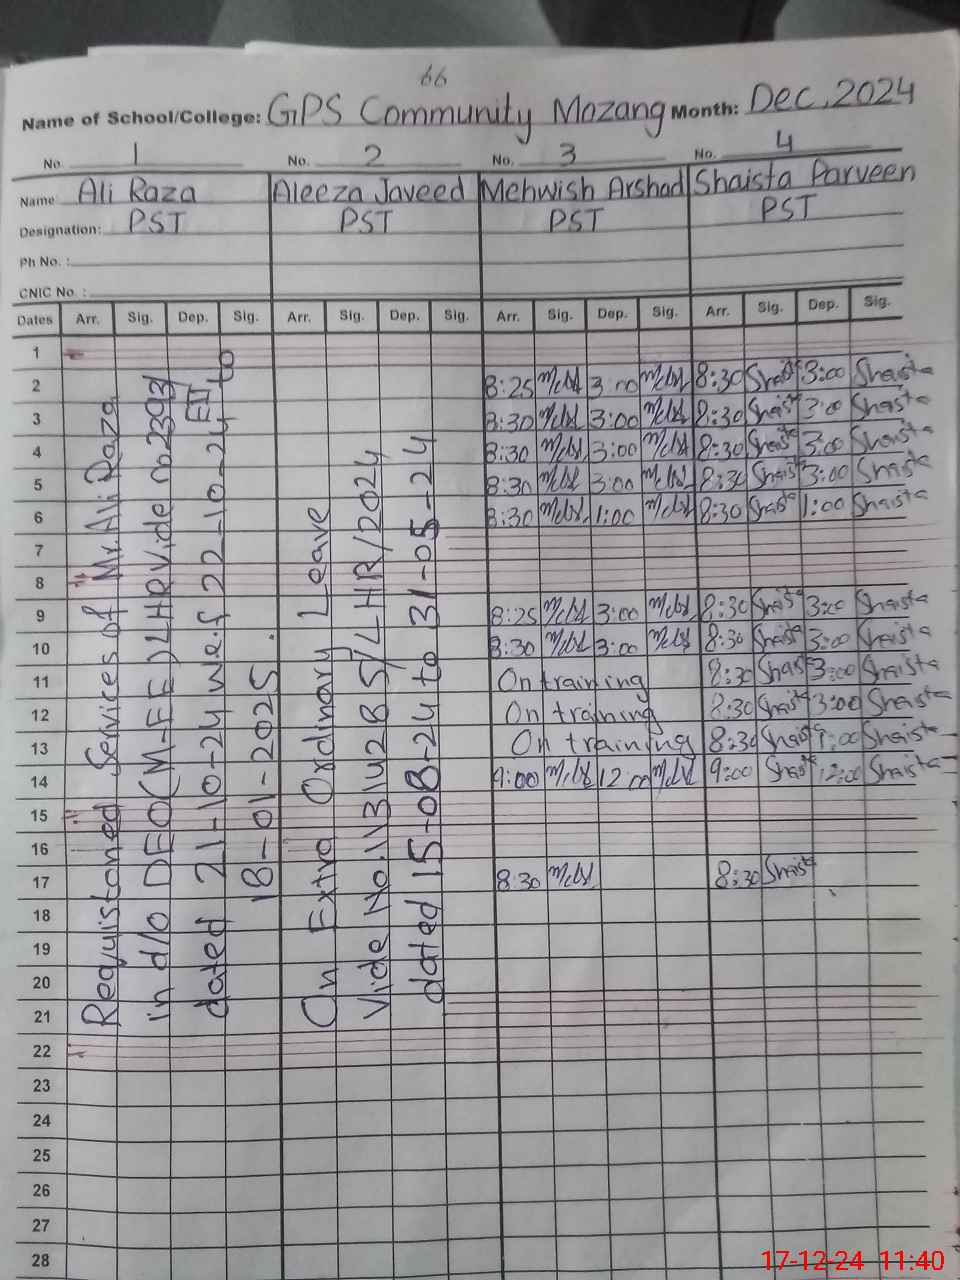 66
Name of School/College: GPS Community Mozang Month: Dec, 2024
No. 1 No. 2 No. 3 No. 4
Name Ali Raza Aleeza Javeed Mehwish Arshad Shaista Parveen
Designation: PST PST PST PST
Ph No. :
CNIC No. :
Dates Arr. Sig. Dep. Sig. Arr. Sig. Dep. Sig. Arr. Sig. Dep. Sig. Arr. Sig. Dep. Sig.
1
2 8:25 3:00 8:30 Shaista 3:00 Shaista
3 8:30 3:00 8:30 Shaista 3:00 Shaista
4 8:30 3:00 8:30 Shaista 3:00 Shaista
5 8:30 3:00 8:30 Shaista 3:00 Shaista
6 8:30 1:00 8:30 Shaista 1:00 Shaista
7
8
9 8:25 3:00 8:30 Shaista 3:00 Shaista
10 8:30 3:00 8:30 Shaista 3:00 Shaista
11 On training 8:30 Shaista 3:00 Shaista
12 On training 8:30 Shaista 3:00 Shaista
13 On training 8:30 Shaista :00 Shaista
14 9:00 12:00 9:00 Shaista 12:00 Shaista
15
16
17 8:30 8:30 Shaista
18
19
20
21
22
23
24
25
26
27
28
Requistoned Services of Mr. Ali Raza
in d/o DEO (M-EE) LHR vide no 2393/
dated 21-10-24 w.e.f 22-10-24 to
18-01-2025.
On Extra Ordinary Leave
Vide No. 1131428 S/LHR/2024
dated 15-08-24 to 31-05-24
17-12-24 11:40